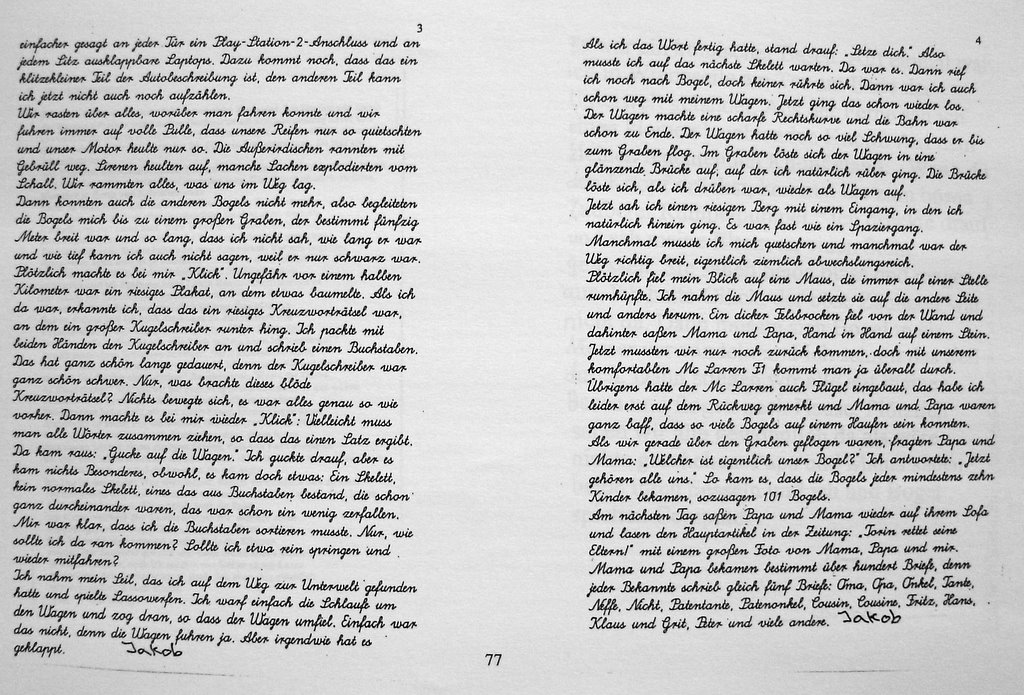 3
einfacher gesagt an jeder Tür ein Play-Station-2-Anschluss und an
jedem Sitz ausklappbare Laptops. Dazu kommt noch, dass das ein
klitzekleiner Teil der Autobeschreibung ist, den anderen Teil kann
ich jetzt nicht auch noch aufzählen.
Wir rasten über alles, worüber man fahren konnte und wir
fuhren immer auf volle Pulle, dass unsere Reifen nur so quietschten
und unser Motor heulte nur so. Die Außerirdischen rannten mit
Gebrüll weg. Sirenen heulten auf, manche Sachen explodierten vom
Schall. Wir rammten alles, was uns im Weg lag.
Dann konnten auch die anderen Bogels nicht mehr, also begleiteten
die Bogels mich bis zu einem großen Graben, der bestimmt fünfzig
Meter breit war und so lang, dass ich nicht sah, wie lang er war
und wie tief kann ich auch nicht sagen, weil er nur schwarz war.
Plötzlich machte es bei mir „Klick". Ungefähr vor einem halben
Kilometer war ein riesiges Plakat, an dem etwas baumelte. Als ich
da war, erkannte ich, dass das ein riesiges Kreuzworträtsel war,
an dem ein großer Kugelschreiber runter hing. Ich packte mit
beiden Händen den Kugelschreiber an und schrieb einen Buchstaben.
Das hat ganz schön lange gedauert, denn der Kugelschreiber war
ganz schön schwer. Nur, was brachte dieses blöde
Kreuzworträtsel? Nichts bewegte sich, es war alles genau so wie
vorher. Dann machte es bei mir wieder „Klick": Vielleicht muss
man alle Wörter zusammen ziehen, so dass das einen Satz ergibt.
Da kam raus: „Gucke auf die Wagen." Ich guckte drauf, aber es
kam nichts Besonderes, obwohl, es kam doch etwas: Ein Skelett,
kein normales Skelett, eines das aus Buchstaben bestand, die schon
ganz durcheinander waren, das war schon ein wenig zerfallen.
Mir war klar, dass ich die Buchstaben sortieren musste. Nur, wie
sollte ich da ran kommen? Sollte ich etwa rein springen und
wieder mitfahren?
Ich nahm mein Seil, das ich auf dem Weg zur Unterwelt gefunden
hatte und spielte Lassowerfen. Ich warf einfach die Schlaufe um
den Wagen und zog dran, so dass der Wagen umfiel. Einfach war
das nicht, denn die Wagen fuhren ja. Aber irgendwie hat es
geklappt.
Jakob
4
Als ich das Wort fertig hatte, stand drauf: „Setze dich." Also
musste ich auf das nächste Skelett warten. Da war es. Dann rief
ich noch nach Bogel, doch keiner rührte sich. Dann war ich auch
schon weg mit meinem Wagen. Jetzt ging das schon wieder los.
Der Wagen machte eine scharfe Rechtskurve und die Bahn war
schon zu Ende. Der Wagen hatte noch so viel Schwung, dass er bis
zum Graben flog. Im Graben löste sich der Wagen in eine
glänzende Brücke auf, auf der ich natürlich rüber ging. Die Brücke
löste sich, als ich drüben war, wieder als Wagen auf.
Jetzt sah ich einen riesigen Berg mit einem Eingang, in den ich
natürlich hinein ging. Es war fast wie ein Spaziergang.
Manchmal musste ich mich quetschen und manchmal war der
Weg richtig breit, eigentlich ziemlich abwechslungsreich.
Plötzlich fiel mein Blick auf eine Maus, die immer auf einer Stelle
rumhüpfte. Ich nahm die Maus und setzte sie auf die andere Seite
und anders herum. Ein dicker Felsbrocken fiel von der Wand und
dahinter saßen Mama und Papa, Hand in Hand auf einem Stein.
Jetzt mussten wir nur noch zurück kommen, doch mit unserem
komfortablen Mc Larren F1 kommt man ja überall durch.
Übrigens hatte der Mc Larren auch Flügel eingebaut, das habe ich
leider erst auf dem Rückweg gemerkt und Mama und Papa waren
ganz baff, dass so viele Bogels auf einem Haufen sein konnten.
Als wir gerade über den Graben geflogen waren, fragten Papa und
Mama: „Welcher ist eigentlich unser Bogel?" Ich antwortete: „Jetzt
gehören alle uns." So kam es, dass die Bogels jeder mindestens zehn
Kinder bekamen, sozusagen 101 Bogels.
Am nächsten Tag saßen Papa und Mama wieder auf ihrem Sofa
und lasen den Hauptartikel in der Zeitung: „Torin rettet seine
Eltern!" mit einem großen Foto von Mama, Papa und mir.
Mama und Papa bekamen bestimmt über hundert Briefe, denn
jeder Bekannte schrieb gleich fünf Briefe: Oma, Opa, Onkel, Tante,
Neffe, Nicht, Patentante, Patenonkel, Cousin, Cousine, Fritz, Hans,
Klaus und Grit, Peter und viele andere.
Jakob
77